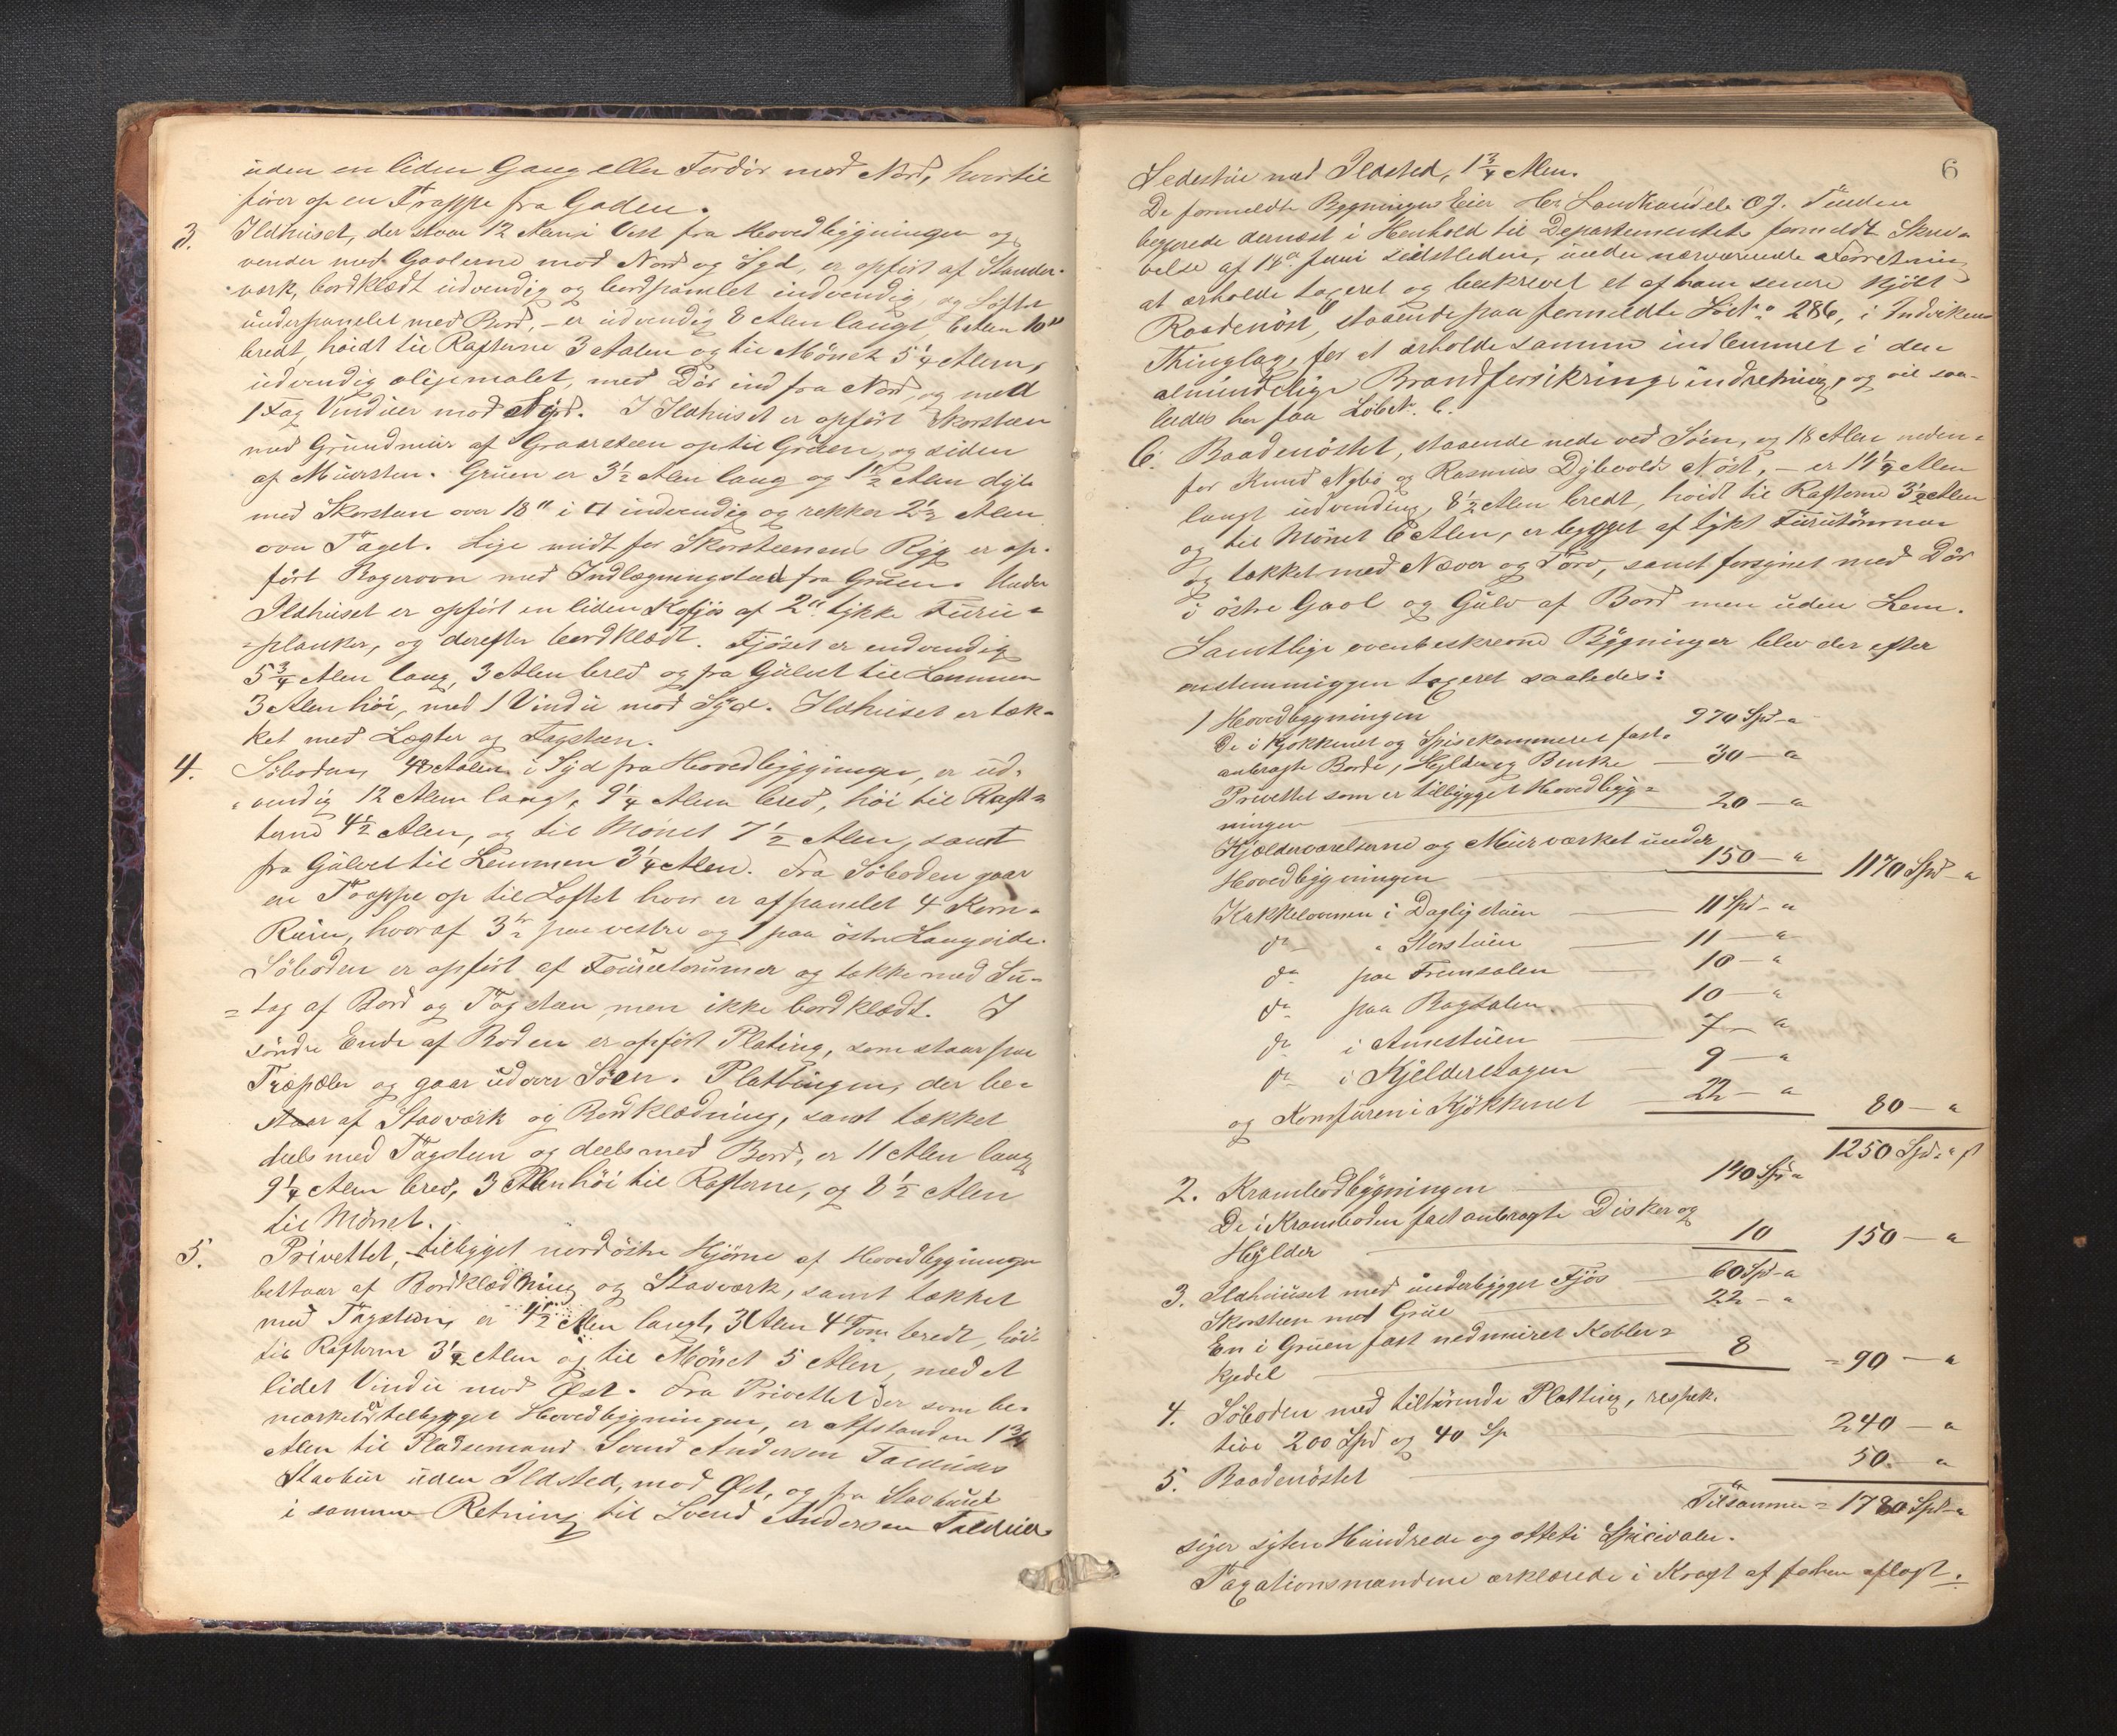 uden en liden Gang eller Fordør mod Nord, hvortil
fører op en Trappe fra Gaden.
3. Ildhuset, der staar 12 Alen i Vest fra Hovedbygningen og
vender med Gavlerne mod Nord og Syd, er opført af Stander-
værk, bordklædt udvendig og bordpanelet indvendig, og Loftet
underpanelet med Bord, – er udvendig 8 Alen langt, 6 Alen 10"
bredt, høidt til Rafterne 3 Aalen og til Mønet 5 1/4 Alen,
udvendig oliemalet, med Dør ind fra Nord, og med
1 Fag Vinduer mod Syd. I Ildhuset er opført Skorsteen
med Grundmur af Graasteen op til Gruen, og siden
af Muursten. Gruen er 3 1/2 Alen lang og 1 1/2 Alen dyb
med Skorsten over 18" i □ indvendig og rekker 2 1/2 Alen
over Taget. Lige midt for Skorsteenens Ryg er op-
ført Bagerovn med Indlægningsted fra Gruen. Under
Ildhuset er opført en liden Kofjøs af 2" tykke Furu-
=planker, og derefter bordklædt. Fjøset er indvendig
5 3/4 Alen lang, 3 Alen bred og fra Gulvet til Lemmen
3 Alen høi, med 1 Vindu mod Syd. Ildhuset er tæk-
ket med Lægter og Tagsten.
4. Søboden, 48 Aalen i Syd fra Hovedbygningen, er ud-
vendig 12 Alen langt, 9 1/4 Alen bred, høi til Raft=
terne 4 1/2 Alen, og til Mønet 7 1/2 Alen, samt
fra Gulvet til Lemmen 3 1/4 Alen. Fra Søboden gaar
en Trappe op til Loftet hvor er afpanelet 4 Korn-
Rum, hvoraf 3 paa vestre og 1 paa østre Langside.
Søboden er opført af Furutømmer og tækket med Su-
=tag af Bord og Tagsten, men ikke bordklædt. I
søndre Ende af Boden er opført Plating, som staar paa
Træpæler og gaar udover Søen. Plattingen, der be-
staar af Stavværk og Bordklædning, samt tækket
deels med Tagsteen og deels med Bord, er 11 Alen lang
9 1/4 Alen bred, 3 Alen høi til Rafterne, og 8 1/2 Alen
til Mønet.
5. Privettet, tilbygget nordøstre Hjørne af Hovedbygningen
bestaar af Bordklædning og Stavværk, samt tækket
med Tagsten, er 4 1/2 Alen langt, 3 Alen 4 Tom bredt, høit
til Rafterne 3 1/2 Alen og til Mønet 5 Alen, med et
lidet Vindu mod Øst. Fra Privettet der som be-
mærket er tilbygget Hovedbygningen, er Afstanden 1 3/4
Alen til Pladsemand Svend Andersen
Stavbur uden Ildsted, mod Øst, og fra Stavburet
i samme Retning til Svend Andersen
6
Sedestue med Ildsted, 1 3/4 Alen.
De formeldte Bygningers Eier Hr Landhandel O. J.
begjærede dernæst i Henhold til Departementets formeldte Skri-
velse af 14de Juni sidstleden, under nærværende Forretning
at erholde taxeret og beskrevet et af ham senere kjøbt
Baadenøst, staaende paa formeldte Løbe No 286, i Indvikens
Thinglag, for at erholde samme indlemmet i den
almindelige Brandforsikringsindretning, og vil saa-
ledes her faa Løbe No 6.
6. Baadenøstet, staaende nede ved Søen, og 18 Alen neden-
for Knud Nybø og Rasmus Nøst, – er 14 1/4 Alen
langt udvendig, 8 1/2 Alen bredt, høidt til Rafterne 3 1/2 Alen
og til Mønet 6 Alen, er bygget af tykt Furutømmer
og tækket med Næver og Torv, samt forsynet med Dør
i østre Gavl og Gulv af Bord men uden Lem.
Samtlige ovenbeskrevne Bygninger blev derefter
enstemmiggen taxeret saaledes:
1 Hovedbygningen 970 Spd "
De i Kjøkkenet og Spisekammeret fast-
anbragte Borde, Hylder og Benke – 30 – "
Privettet som er tilbygget Hovedbyg=
ningen – 20 – "
Kjælderværelserne og Muurværket under
Hovedbygningen – 150 – " 1170 Spd – "
Kakkelovnen i Dagligstuen – 11 Spd – "
do " Storstuen – 11 – "
do paa Fremsalen – 10 – "
do paa Bagsalen – 10 – "
do i Annestuen – 7 – "
do i Kjelderetagen – 9 – "
og Komfuren i Kjøkkenet – 22 – " 80 – "
1250 Spd "
2. Krambodbygningen – 140 Spd "
De i Kramboden fast anbragte Disker og
Hylder – 10 150 – "
3. Ildhuuset med underbygget Fjøs – 60 Spd – "
Skorsteen med Grue – 22 – "
En i Gruen fast nedmuret Kobber=
kjedel – 8 = 90 – "
4. Søboden med tilhørende Platting, respek-
tive 200 Spd og 40 Sp – 240 – "
5. Baadenøstet – 50 – "
Tilsammen = 1780 Spd – "
siger sytten Hundrede og otteti Speciedaler.
Taxationsmændene erklærede i Kraft af forhen aflagt